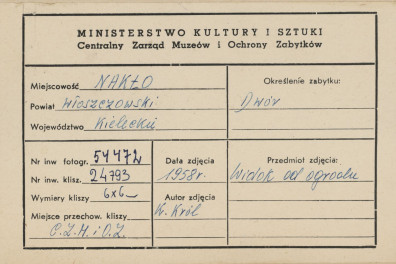 MINISTERSTWO KULTURY I SZTUKI
Centralny Zarząd Muzeów i Ochrony Zabytków
Miejscowość NAKŁO
Powiat włoszczowski
Województwo Kieleckie
Określenie zabytku:
Dwór
Nr inw fotogr. 54472
Nr inw. klisz. 24793
Wymiary kliszy 6x6
Miejsce przechow. kliszy
C.Z.M. i O.Z.
Data zdjęcia
1958r.
Autor zdjęcia
W. Król
Przedmiot zdjęcia:
Widok od ogrodu